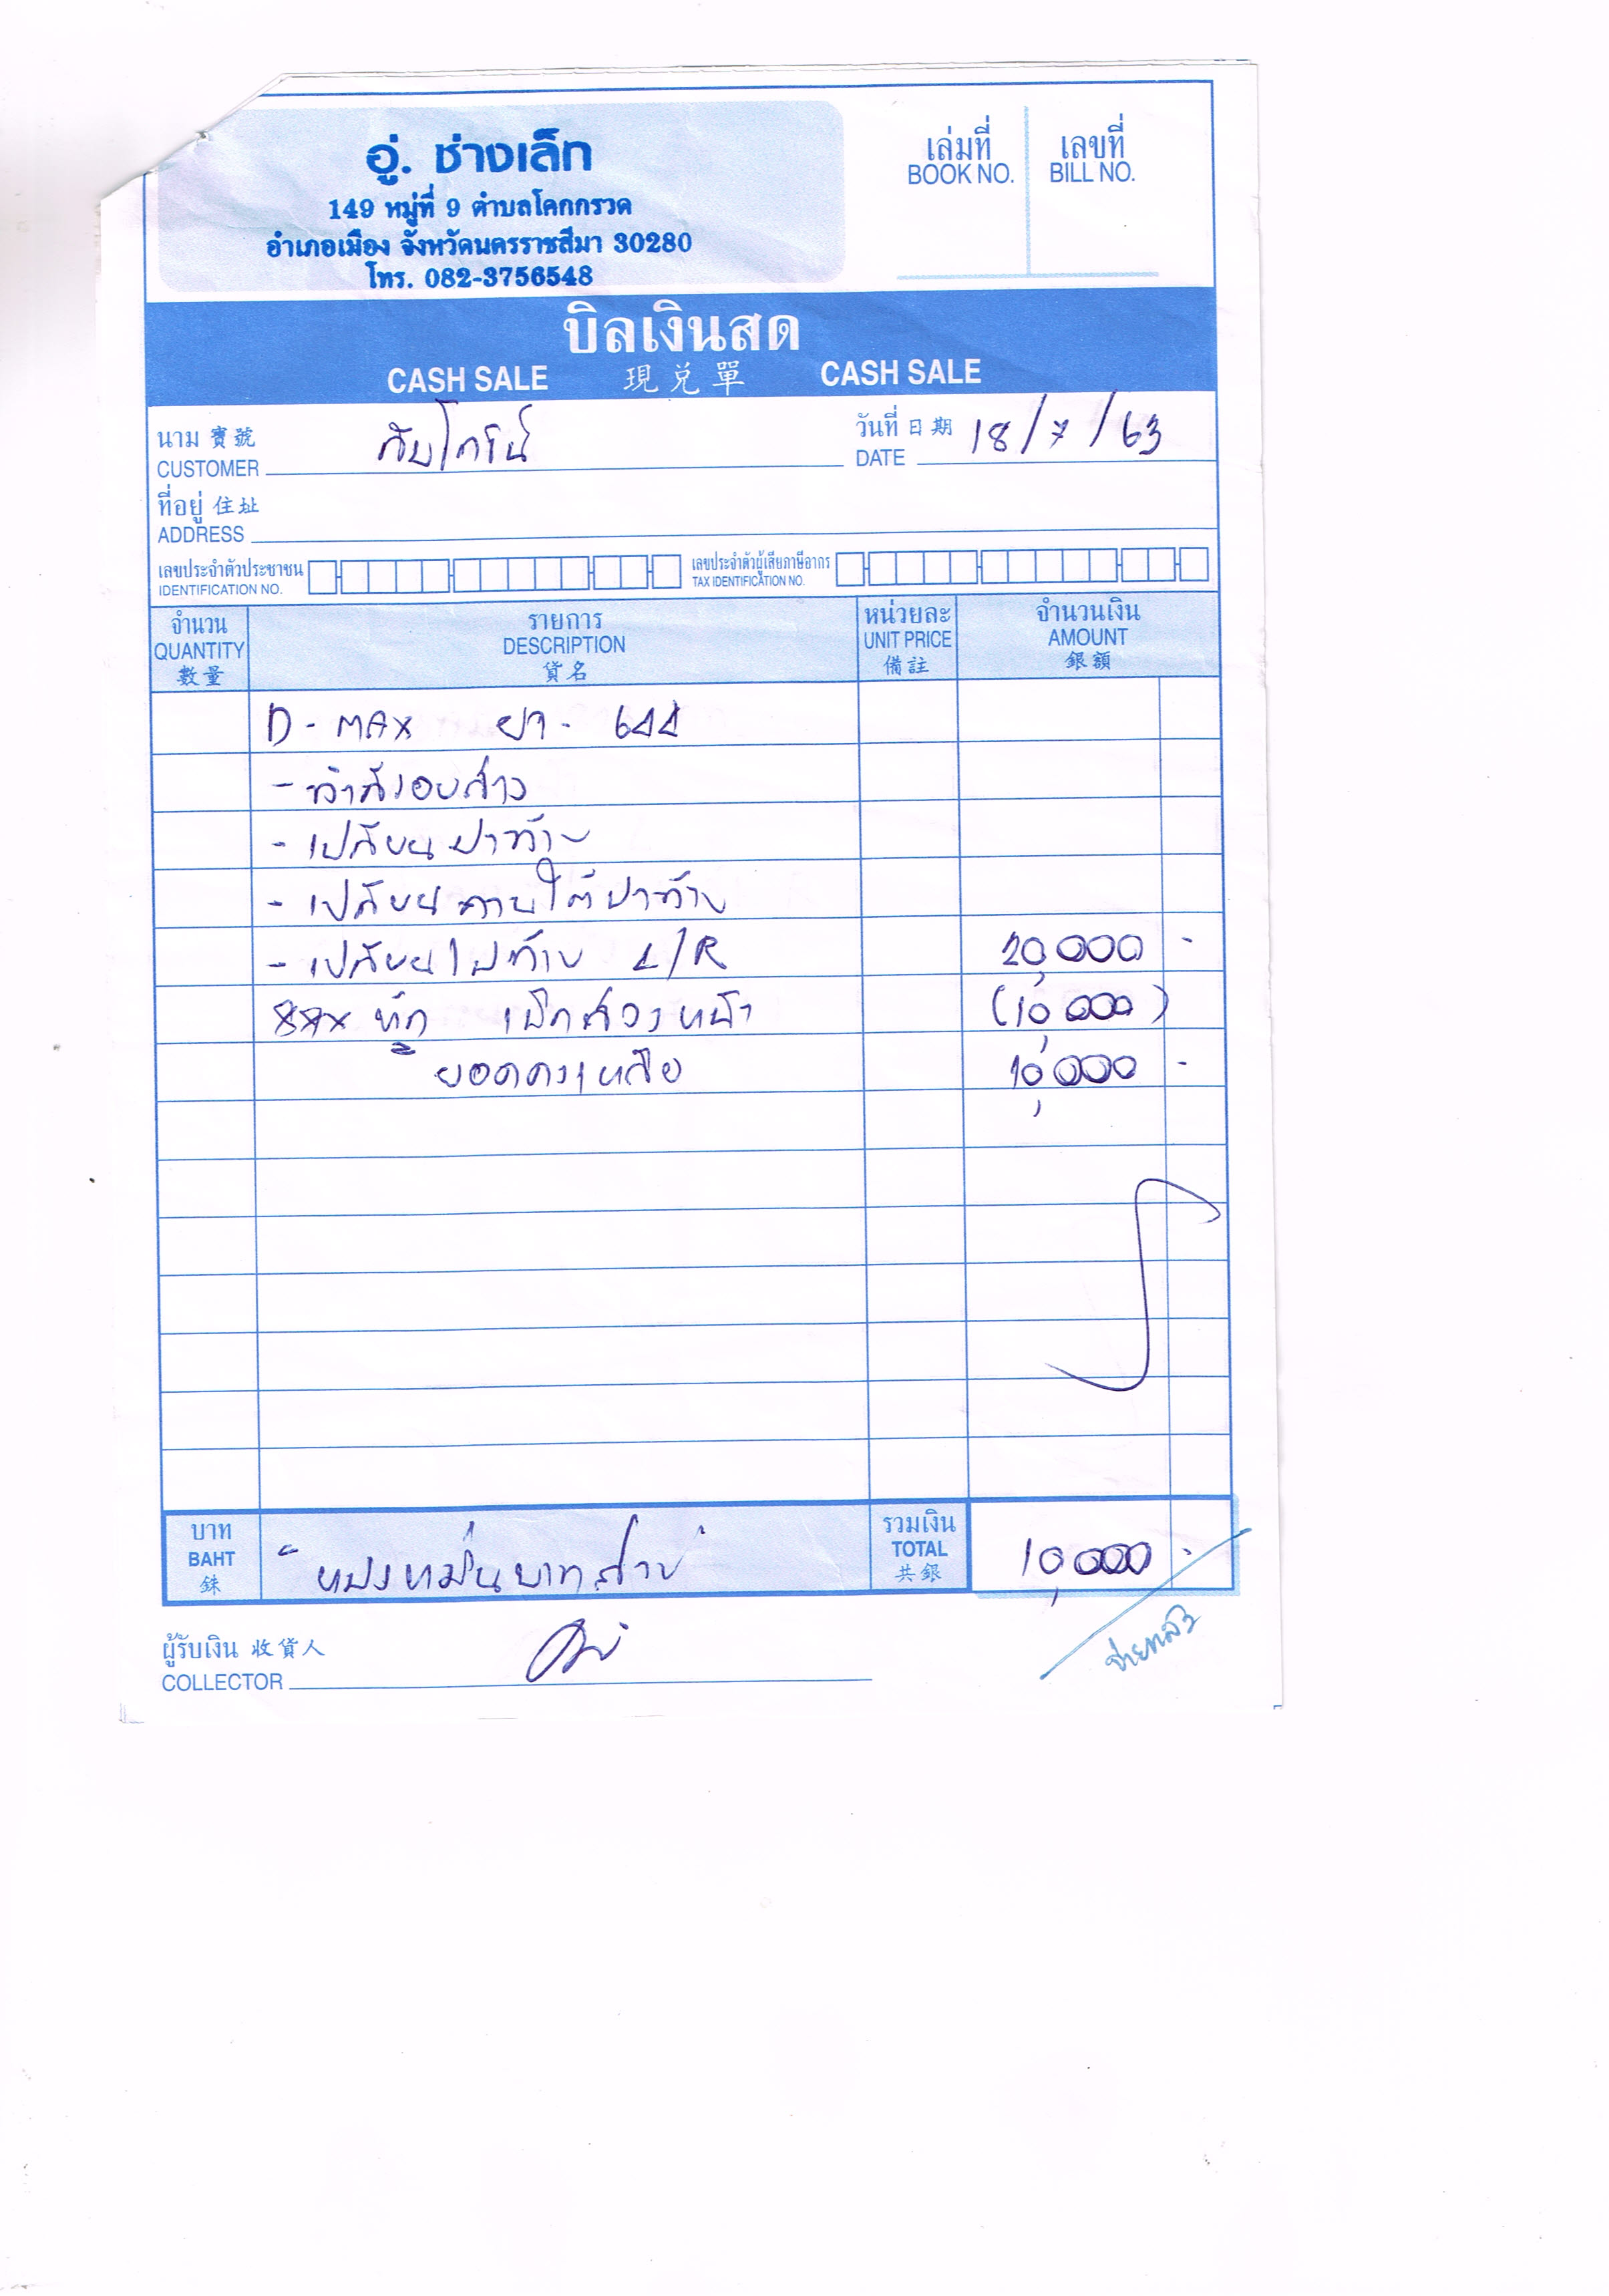 อู่. ช่างเล็ก
149 หมู่ที่ 9 ตำบลโคกกรวด
อำเภอเมือง จังหวัดนครราชสีมา 30280
โทร. 082-3756548
เล่มที่ เลขที่
BOOK NO. BILL NO.
บิลเงินสด
CASH SALE 現兌單 CASH SALE
นาม 寶號 วันที่ 日期 18/7/63
CUSTOMER DATE
ที่อยู่ 住址
ADDRESS
เลขประจำตัวประชาชน เลขประจำตัวผู้เสียภาษีอากร
IDENTIFICATION NO. TAX IDENTIFICATION NO.
จำนวน รายการ หน่วยละ จำนวนเงิน
QUANTITY DESCRIPTION UNIT PRICE AMOUNT
數量 貨名 備註 銀額
D-MAX ผา-644
- ทำสีรอบ
- เปลี่ยนฝาท้าย
- เปลี่ยน ฝาท้าย
- เปลี่ยนไฟท้าย L/R 20,000 -
หัก เบิกล่วงหน้า (10,000)
ยอดคงเหลือ 10,000 -
บาท รวมเงิน
BAHT หนึ่งหมื่นบาทถ้วน TOTAL 10,000 -
銖 共銀
ผู้รับเงิน 收貨人 จ่ายแล้ว
COLLECTOR